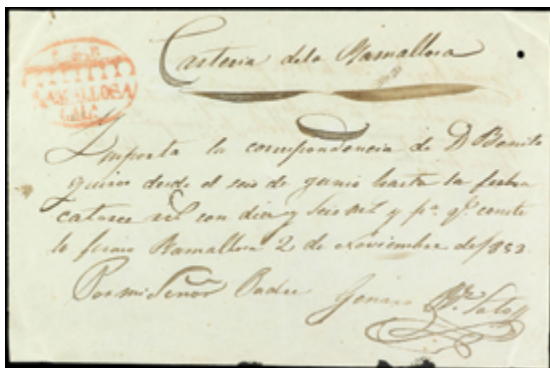 RAMALLOSA
GALA
Carteria dela Ramallosa
Importa la correspondencia de D Benito
quiros desde el seis de junio hasta la fecha
catorce rs con diez y seis ms y pa. qe. conste
lo firmo Ramallosa 2 de noviembre de 1853
Por mi Señor Padre Genaro